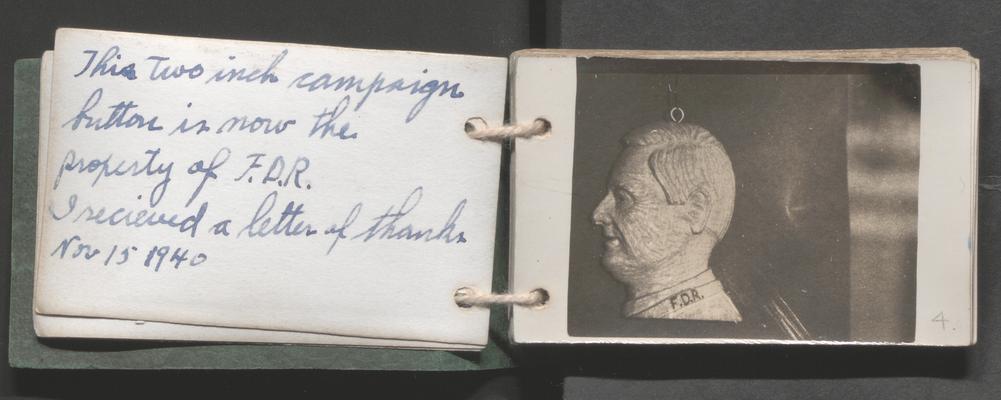 This two inch campaign
button is now the
property of F.D.R.
I recieved a letter of thanks
Nov 15 1940
F.D.R.
4.